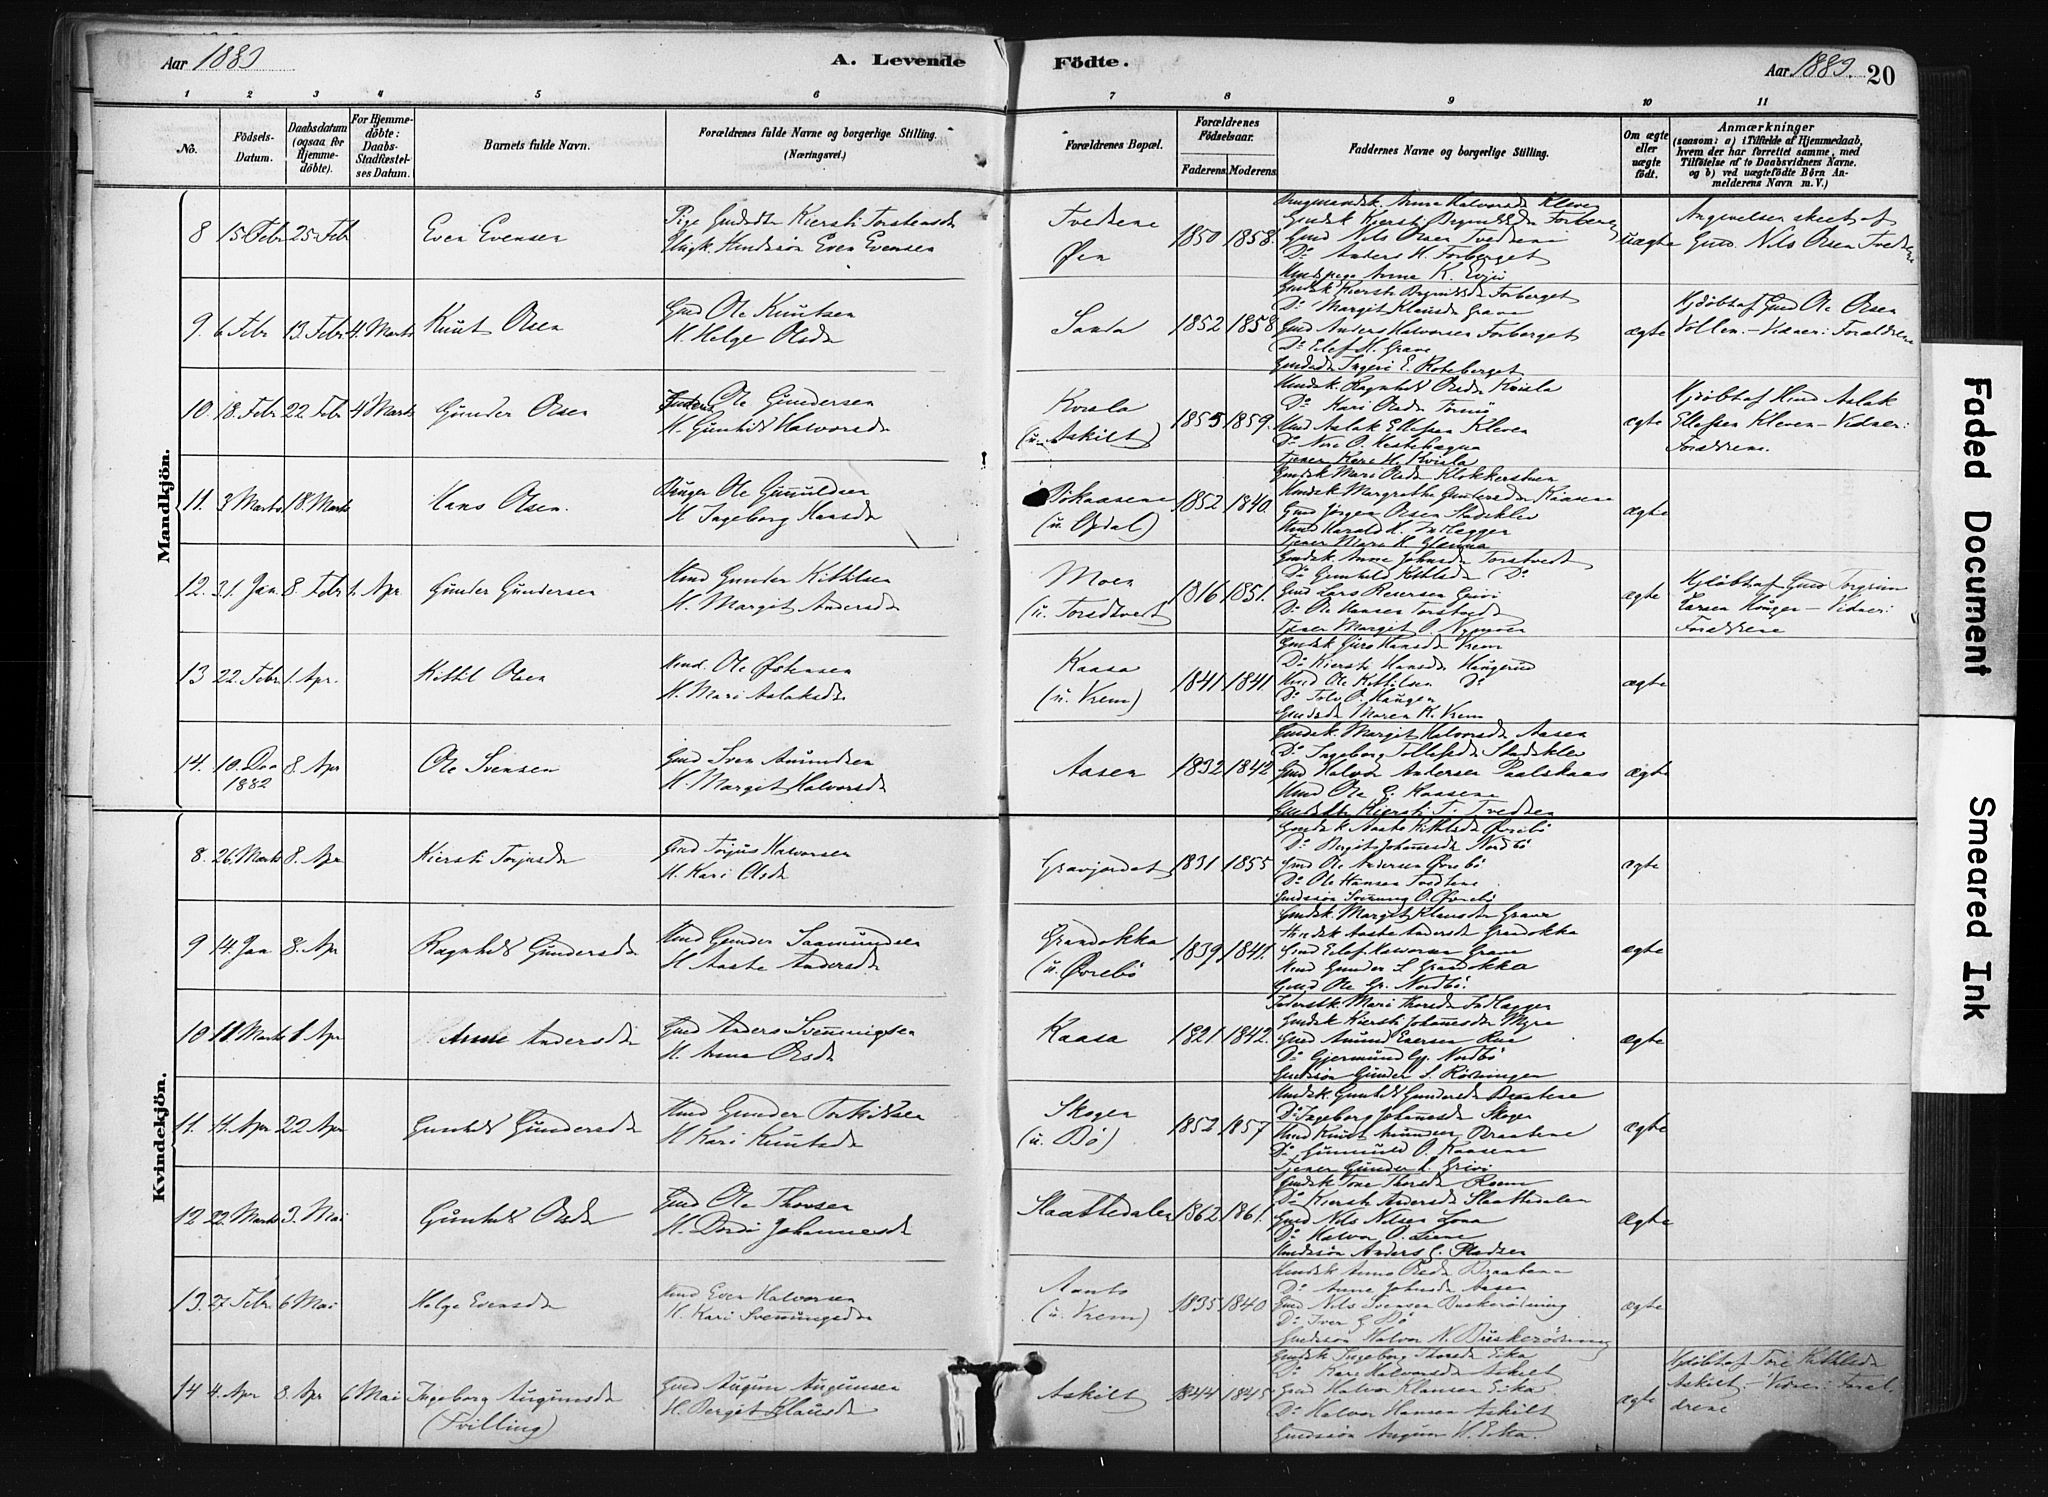 Aar 1883
A. Levende Födte.
Aar 1883. 20
1 2 3 4 5 6 7 8 9 10 11
No.
Födsels-Datum.
Daabsdatum (ogsaa for Hjemme-döbte).
For Hjemme-döbte: Daabs-Stadfæstel-ses Datum.
Barnets fulde Navn.
Forældrenes fulde Navne og borgerlige Stilling. (Næringsvei.)
Forældrenes Bopæl.
Forældrenes Födselsaar.
Faderens. Moderens.
Faddernes Navne og borgerlige Stilling.
Om ægte eller uægte födt.
Anmærkninger
(saasom: a) i Tilfælde af Hjemmedaab, hvem der har forrettet samme, med Tilföielse af to Daabsvidners Navne, og b) ved uægtefödte Börn An-melderens Navn m. V.)
Mandkjön.
8 15 Febr 25 Febr Even Evensen
Pige Gudsdtr Kiersti Torstensdr
Ungk. Hmdssön Even Evensen
Tvedtene
Öen
1850 1858.
Gmdsk Kiersti Brynildsdr Forberget
Gmd Nils Olsen Tvedtene
Do Anders H. Forberget
Hmdspige Anne K. Evju
uægte
Angivelsen skeet af
Gmd. Nils Olsen Tvedtene
9. 6 Febr 13 Febr 4. Marts Knut Olsen
Gmd Ole Knutsen
H. Helge Olsdr
Sanda
1852 1858
Gmdsk Kiersti Brynildsdr Forberget
Do Margit Klausdr Grave
Gmd Anders Halvorsen Forberget
Do Elef H. Grave
Gmdsdr Ingeri E. Roteberget
ægte
Hjdöbt af Gmd Ole Olsen
Vollen. - Vidner: Forældrene
10. 18. Febr 22 Febr 4 Marts Gunder Olsen
Ole Gundersen
H. Gunhild Halvorsdr
Kvisla
(u. Askilt)
1855 1859.
Hmdsk. Ragnhild Olsdr Kvisla
Do Kari Olsdr
Hmd Aslak Ellefsen Kleven
Do Nere O. Hestehagen
Tjener Kari H. Kvisla
ægte
Hjdöbt af Hmd Aslak
Ellefsen Kleven - Vidner:
Forældrene.
11. 3 Marts 18. Marts Hans Olsen.
Ole Gunuldsen
H Ingeborg Hansdr
Bökaasene
(u. Opdal)
1852 1840.
Gmdsk Mari Olsdr Klokkerstuen
Hmdsk Margrethe Gundersdr Kaasene
Gmd Jörgen Olsen Stadskleiv
Hmd Harald K. Indlæggen
Tjener Mari H. Glenna
ægte
12. 31. Jan. 8. Febr 1. Apr. Gunder Gundersen
Hmd Gunder Kittilsen
H. Margit Andersdr
Moen
(u. Torstveit)
1816 1851.
Gmdsk. Anne Johnsdr Torstvedt
Do Gunhild Kittilsdr Do
Gmd Lars Petersen Grivi
Do Ole Hansen Torstvedt
Tjener Margit O. Nymoen
ægte
Hjdöbt af Gmd Torgrim
Larsen Haugen - Vidner:
Forældrene
13 22. Febr 1. Apr. Kittil Olsen
Hmd. Ole Östensen
H. Mari Aslaksdr
Kaasa
(u. Vrem)
1841 1841.
Gmdsk Guro Hansdr Vrem
Do Kiersti Hansdr Haugerud
Hmd Ole Kittilsen Do
Do Tolv O. Haugen
Gmdsdr Maren K. Vrem
ægte
14. 10. Dec 1882 8. Apr Ole Svensen
Gmd Sven Amundsen
H. Margit Halvorsdr
Aasen
1832 1842
Gmdsk. Margit Halvorsdr Aasen
Do Ingeborg Tollefsdr Stadskleiv
Gmd Halvor Andersen Paalskaas
Hmd Ole G. Kaasene
Gmdsdtr Kiersti T. Tvedten
ægte
Kvindekjön.
8. 26. Marts 8. Apr Kiersti Torjusdr
Gmd Torjus Halvorsen
H. Kari Olsdr
Gravjordet
1831 1855
Gmdsk Aaste Kittilsdr Övrebö
Do Birgit Johannesdr Nordbö
Gmd Ole Andersen Övrebö
Do Ole Hansen Tvedtene
Gmdssön Svenung O. Övrebö
ægte
9 14. Jan 8. Apr Ragnhild Gundersdr
Hmd Gunder Saamundsen
H Aaste Andersdr
Grandokka
(u. Övrebö)
1839 1841.
Gmdsk. Margit Klausdr Grave
Hmdsk Aaste Andersdr Grandokka
Gmd Elef Halvorsen Grave
Hmd Gunder S. Grandokka
Gmd Ole Gr. Nordbö.
ægte
10 11 Marts 1 Apr Anne Andersdr
Gmd Anders Svenningsen
H. Anne Olsdr
Kaasa
1821 1842.
Mari Thorsdr Indlæggen
Gmdsk Kiersti Johannesdr Myra
Gmd Amund Evensen Rua
Do Gjermund Gj. Nordbö
Gmdssön Gunder S. Rösningen
ægte
11. 11. Apr 22 Apr Gunhild Gundersdr
Hmd Gunder Torkildsen
H Kari Knutsdr
Skogen
(u. Bö)
1852 1857
Hmdsk. Gunhild Gundersdr Braatene
Do Ingeborg Johannesdr Skogen
Hmd Knut Braatene
Do Gunnuld O. Kaasene
Tjener Gunder L. Grivi
ægte
12 22. Marts 3. Mai Gunhild Olsdr
Gmd Ole Thorsen
H. Dordi Johannesdr
Slaattedalen
1862 1861.
Gmdsk Tone Thorsdr Roem
Do Kiersti Andersdr Slaattedalen
Gmd Nils Nilsen Lona
Do Halvor O. Liene
Hmdssön Anders G. Pladsen
ægte
13. 27 Febr. 6 Mai Helge Evensdr
Hmd Even Halvorsen
H. Kari Svenningsdr
Aanto
(u. Vrem)
1835 1840
Hmdsk Anne Olsdr Braatene
Do Anne Johnsdr Aasen
Gmd Nils Svensen Buskerösning
Do Iver G Bö
Gmdssön Halvor N. Buskerösning
ægte
14 4. Apr 8. Apr 6 Mai Ingeborg Augunsdr
(Tvilling)
Gmd Augun Augunsen
H. Bergit Klausdr
Askilt
1844 1845.
Gmdsk Ingeborg Thorsdr Eika
Do Kari Halvorsdr Askilt
Gmd Halvor Klausen Eika
Do Halvor Hansen Askilt
Gmdssön Augun H. Eika.
ægte
Hjdöbt af Tore Kittilsdr
Askilt. - Vidner: Foræl-
drene
Faded Document
Smeared Ink